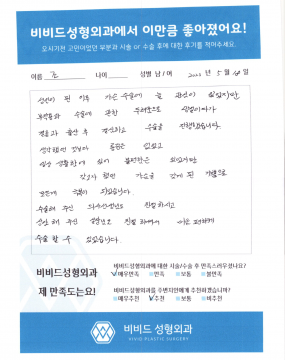 비비드성형외과에서 이만큼 좋아졌어요!
오시기전 고민이었던 부분과 시술 or 수술 후에 대한 후기를 적어주세요.
이름 조 나이 성별 남 / 여 년 5월 일
성인이 된 이후 가슴 수술에 늘 관심이 있었지만
부작용과 수술에 관한 두려움으로
결혼과 출산 후 수술을 진행했습니다.
생각했던 것보다 통증은 있었고
일상 생활함에 있어 불편함은 있었지만
갖고자 했던 가슴을 갖게 된 기쁨으로
모든게 되었습니다.
수술해 주신 의사선생님도 친절하시고
상담해 주신 친절하셔서
수술할 수 있었습니다.
비비드성형외과
제 만족도는요!
비비드성형외과에 대한 시술/수술 후 만족스러우셨나요?
매우만족 만족 보통 불만족
비비드성형외과를 주변지인에게 추천하겠습니까?
매우추천 추천 보통 비추천
비비드 성형외과
VIVID PLASTIC SURGERY